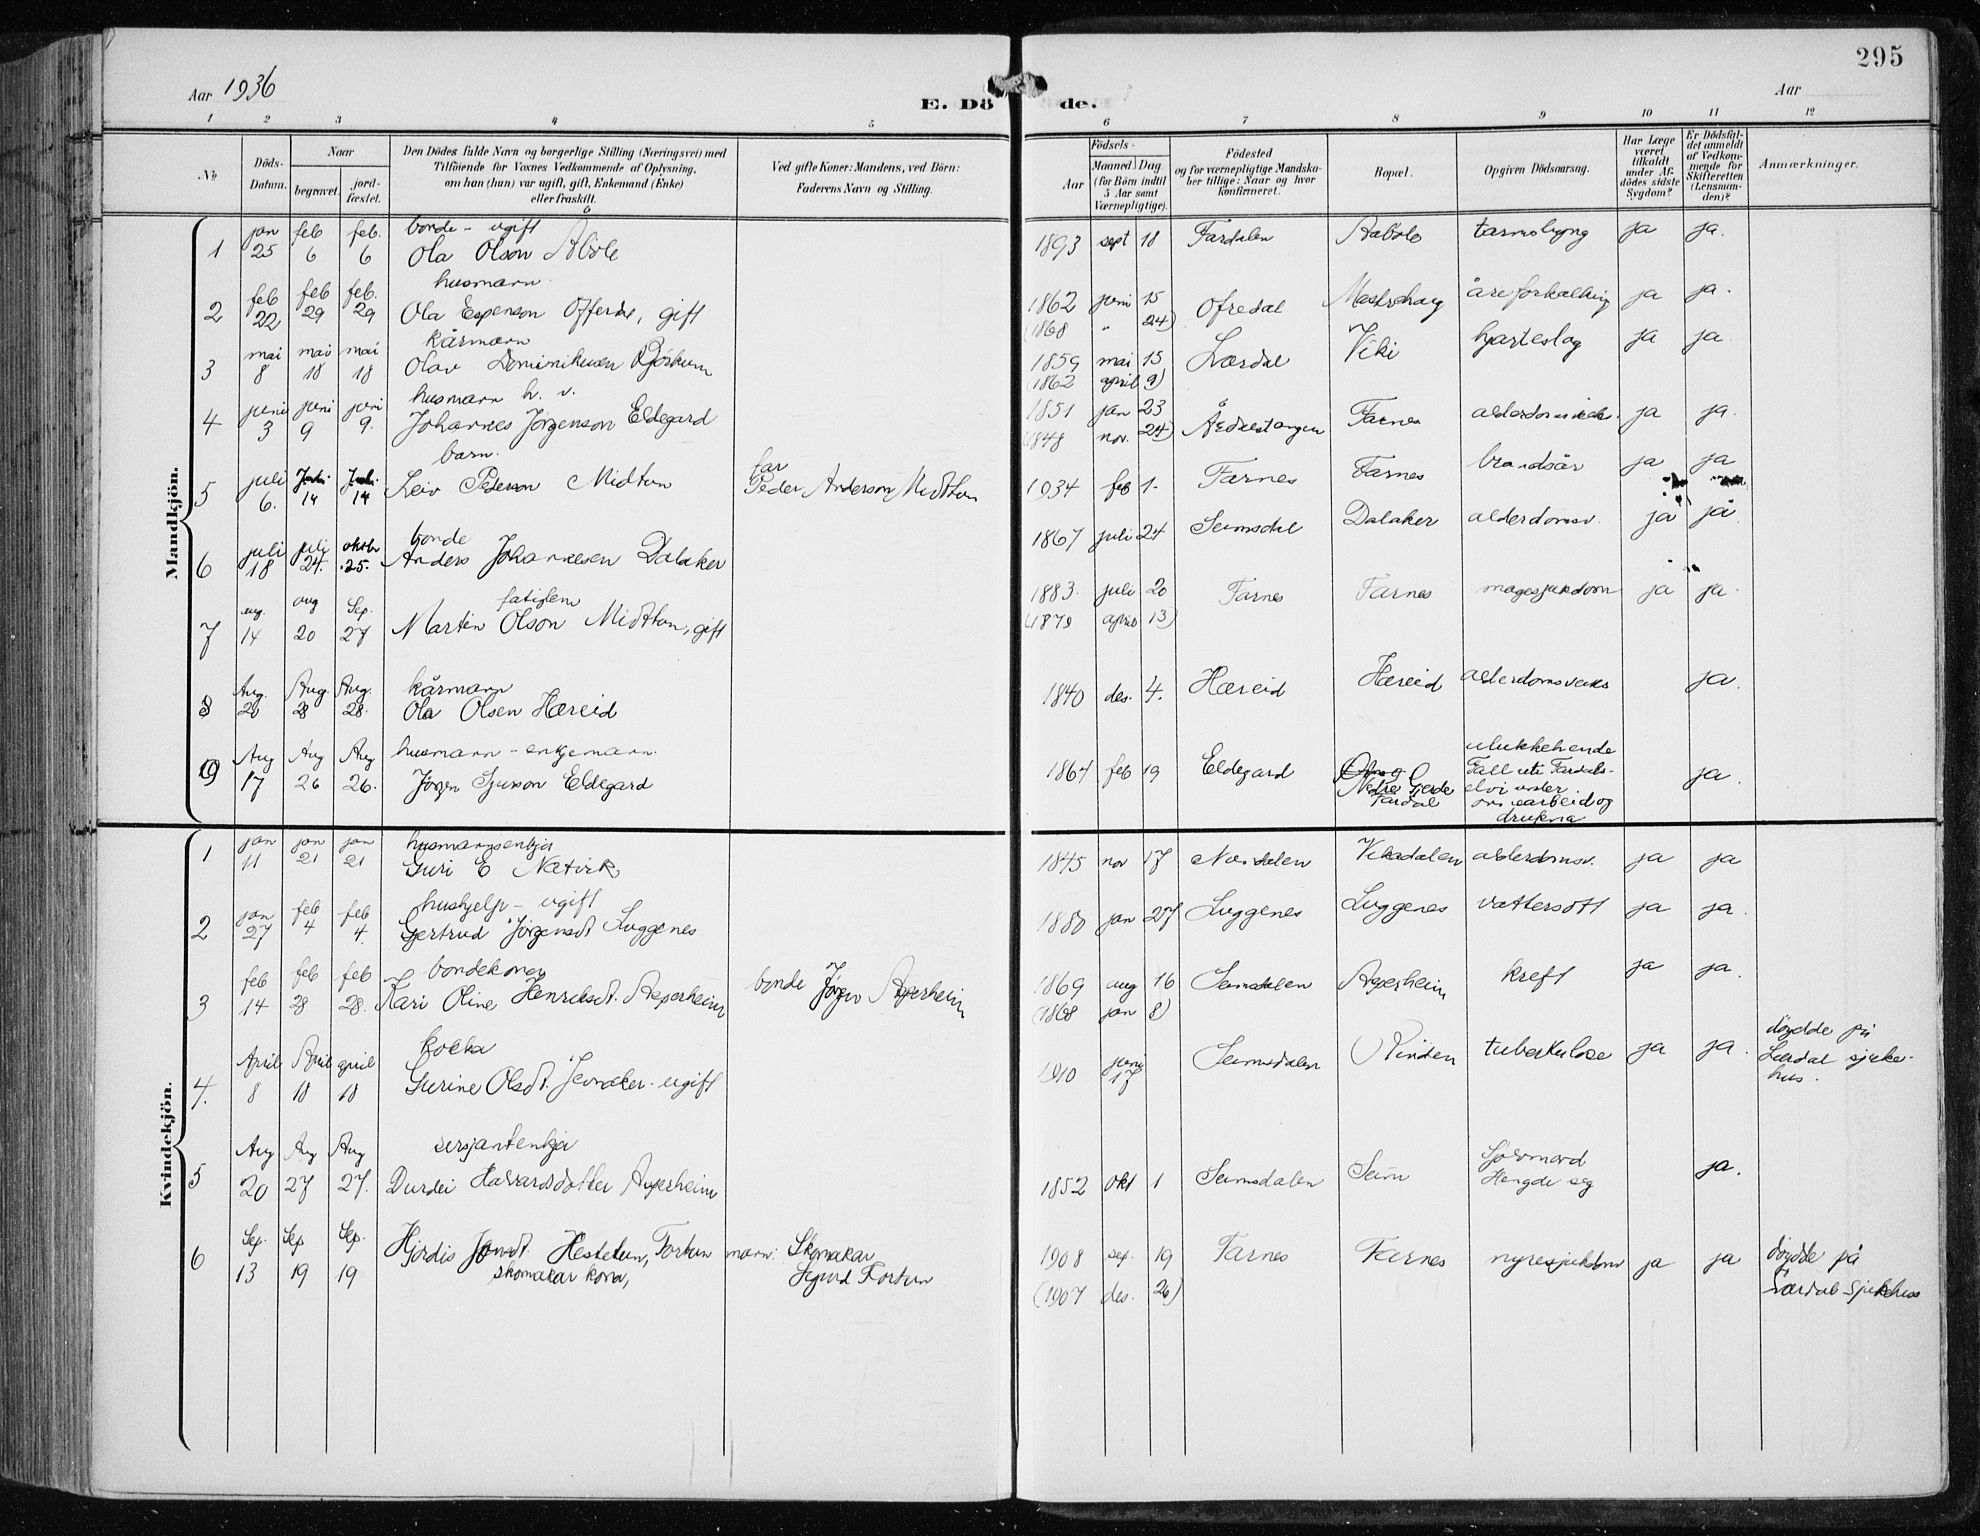 295
Aar 1936
E. Dö de.
Aar
1 2 3 4 5 6 7 8 9 10 11 12
No.
Döds-Datum.
Naar
begravet.
jord-fæstet.
Den Dödes fulde Navn og borgerlige Stilling (Næringsvei) med
Tilföiende for Voxnes Vedkommende af Oplysning,
om han (hun) var ugift, gift, Enkemand (Enke)
eller fraskilt.
Ved gifte Koner: Mandens, ved Börn:
Faderens Navn og Stilling.
Födsels-
Aar
Maaned. Dag
(for Börn indtil
5 Aar samt
Værnepligtige).
Födested
og for værnepligtige Mandska-
ber tillige: Naar og hvor
konfirmeret.
Bopæl.
Opgiven Dödsaarsag.
Har Læge
været
tilkaldt
under Af-
dödes sidste
Sygdom?
Er Dödsfal-
det anmeldt
af Vedkom-
mende for
Skifteretten
(Lensman-
den)?
Anmærkninger.
Mandkjön.
1 jan 25 feb 6 feb. 6 bonde - ugift
Ola Olson Åbøle 1893 sept 18 Fardalen Aabøle ja ja.
2 feb 22 feb 29 feb. 29 husmann
Ola Espenson Offerdal, gift 1862 juni 15 Ofredal åreforkalking ja ja.
(1868 " 24)
3 mai 8 mai 18 mai 18 kårmann
Olav 1859 mai 15 Lærdal Viki hjarteslag ja ja.
(1862 april 9)
4 juni 3 juni 9 juni 9. husmann h. v.
Johannes Jørgenson Eldegard 1851 jan 23 Årdalstangen Farnes ja ja.
(1848 nov. 24)
5 juli 6. Juli 14 Juli 14 barn.
Leiv Pederson Midtun far
Peder Anderson Midtun 1934 feb 1. Farnes Farnes brandsår ja ja
6 juli 18 juli 24. oktbr 25. bonde
Anders Johannesen Dalaker 1867 juli 24 Seimsdal Dalaker alderdomsv. ja ja
7 aug. 14 aug 20 Sep. 27 fatiglem
Martin Olson Midttun, gift 1883. juli 20 Farnes Farnes magesjukdom ja ja.
(1879 april 13)
8 Aug. 20 Aug. 28 Aug. 28. kårmann
Ola Olsen Hæreid 1840 des. 4. Hæreid Hæreid ja.
9 Aug 17 Aug 26 Aug 26. husmann - enkjemann.
Jørgen Sjurson Eldegard 1867 feb 19 Eldegard Nedre Gjerde
Fardal ulukkehende
Fall uti Fardals-
elvi under
arbeid og
drukna ja.
Kvindekjön.
1 jan 11 jan 21 jan 21 husmannsenkja
Guri E Nætvik 1845 nov 17 Vikadalen alderdomsv. ja ja
2 jan 27 feb 4 feb 4. hushjelp - ugift
Gjertrud Jørgensdt Luggenes 1880 jan 27 Luggenes Luggenes vattersott ja ja.
3 feb 14 feb 28 feb 28. bondekone
Kari Oline Henriksdt. Asperheim bonde Jørgen Asperheim 1869 aug 16 Seimsdalen Asperheim kreft ja ja.
(1868 jan 8)
4. April 8 April 18 april 18 kokka
Gurine Olsdt. ugift 1910 juni 17 Seimsdalen Rinden tuberkulose ja ja. døydde på
Lærdal sjuke-
hus.
5 Aug 20 Aug 27 Aug 27. sersjantenkja
Durdei Havardsdotter Asperheim 1852 okt 1 Seimsdalen Seim Sjølvmord
Hengde seg ja.
6 Sep. 13 Sep 19 Sep. 19 Hjørdis Jonsdt. Hestetun, Fortun
skomakar kona, mann: Skomakar
Sigurd Fortun 1908 sep. 19 Farnes Farnes nyresjukdom ja ja døydde på
Lærdal sjukehus
(1907 des. 26)